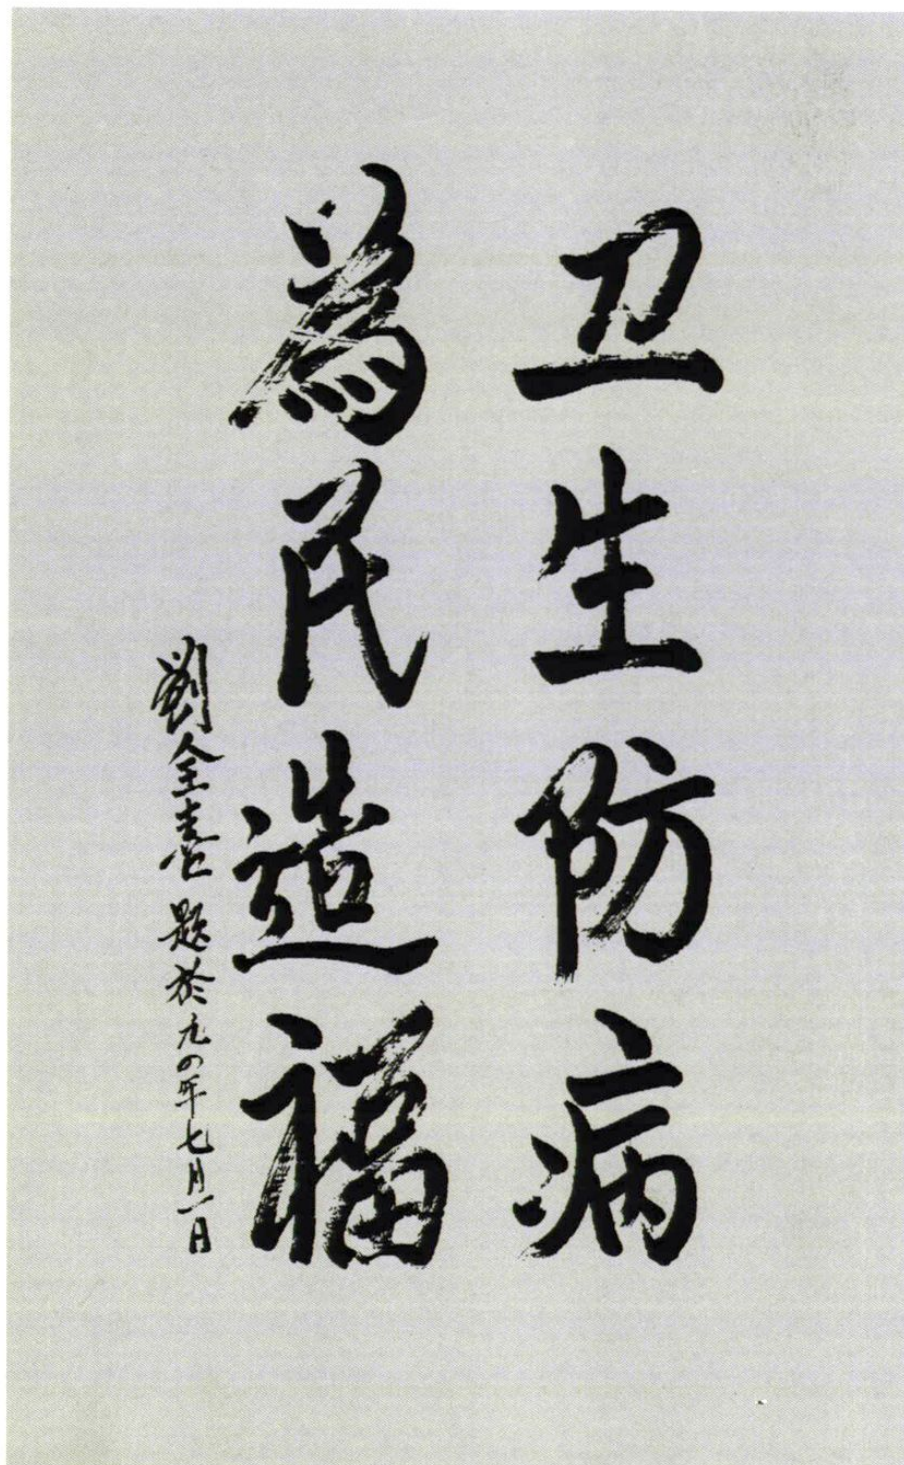 卫生防病
為民造福
劉全喜 题於九四年七月一日